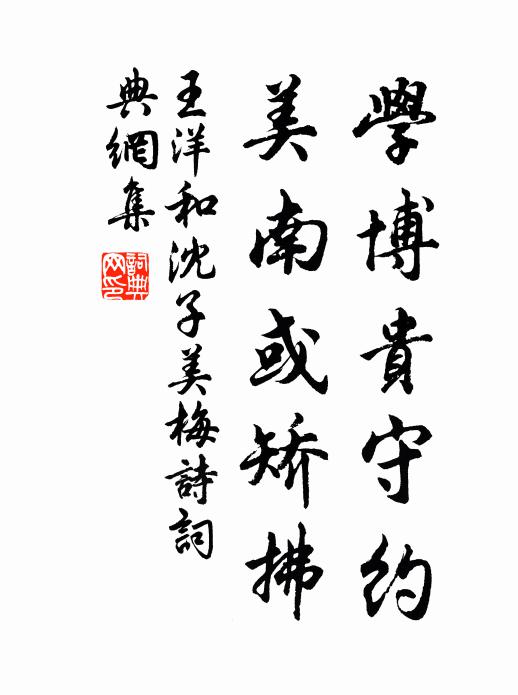 學博貴守約
美南或矫拂
王洋和沈子美梅詩詞
典網集
詞典網印